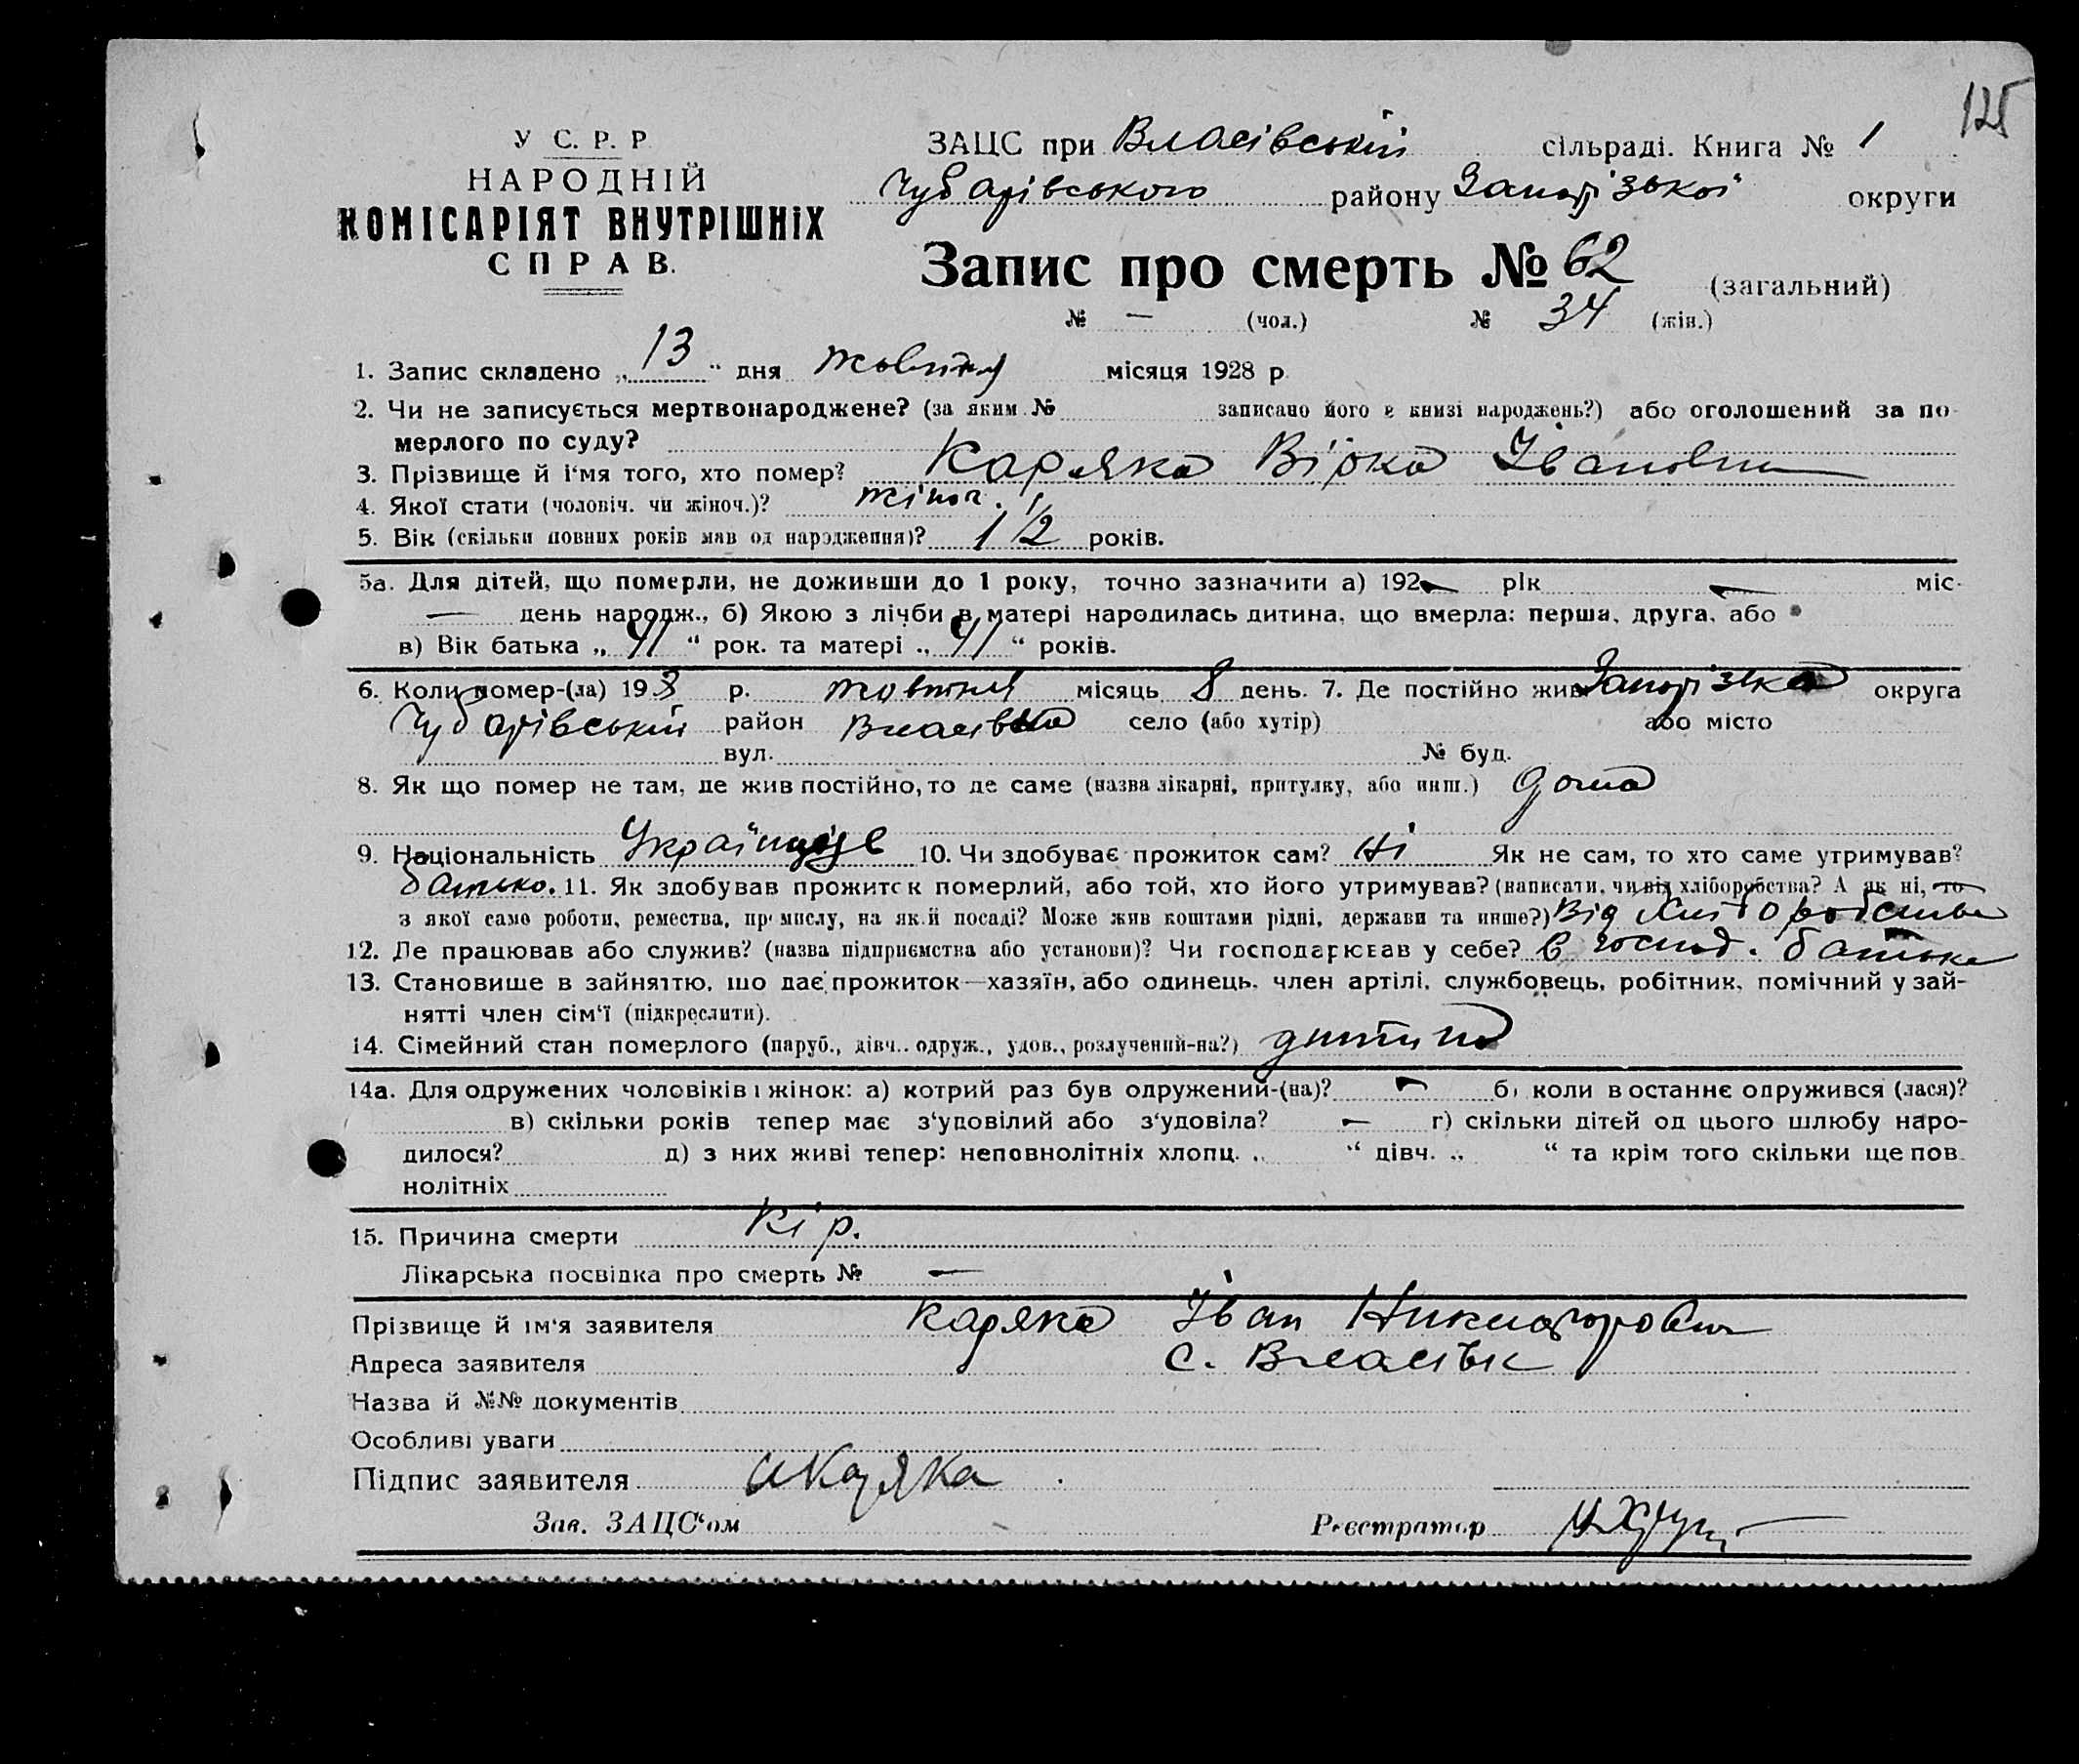 125
У С. Р. Р
НАРОДНІЙ
КОМІСАРІЯТ ВНУТРІШНІХ
СПРАВ.
ЗАЦС при Власівській сільраді. Книга № 1
Чубарівського району Запорізької округи
Запис про смерть № 62 (загальний)
№ — (чол.) № 34 (жін.)
1. Запис складено „ 13 “ дня жовтня місяця 1928 р
2. Чи не записується мертвонароджене? (за яким № записано його в книзі народжень?) або оголошений за по-
мерлого по суду?
3. Прізвище й і‘мя того, хто помер? Каряка Вірка Івановна
4. Якої стати (чоловіч. чи жіноч.)? жіноч.
5. Вік (скільки повних років мав од народження)? 1 1/2 років.
5а. Для дітей, що померли, не доживши до 1 року, точно зазначити а) 192— рік — міс-
— день народж., б) Якою з лічби в матері народилась дитина, що вмерла: перша, друга, або
в) Вік батька „ 41 “ рок. та матері „ 41 “ років.
6. Коли помер-(ла) 19 р. жовтня місяць 8 день. 7. Де постійно жив Запорізька округа
Чубарівський район Власівка село (або хутір) або місто
вул. № буд.
8. Як що помер не там, де жив постійно, то де саме (назва лікарні, притулку, або инш.) дома
9. Національність 10. Чи здобуває прожиток сам? Ні Як не сам, то хто саме утримував?
батько. 11. Як здобував прожиток померлий, або той, хто його утримував? (написати, чи від хліборобства? А як ні, то
з якої само роботи, ремества, промислу, на якій посаді? Може жив коштами рідні, держави та инше?) Від хліборобства
12. Де працював або служив? (назва підприємства або установи)? Чи господарював у себе? в господ. батька
13. Становище в зайняттю, що дає прожиток—хазяїн, або одинець, член артілі, службовець, робітник, помічний у зай-
нятті член сім‘ї (підкреслити).
14. Сімейний стан померлого (паруб., дівч.. одруж., удов., розлучений-на?) дитина
14а. Для одружених чоловіків і жінок: а) котрий раз був одружений-(на)? — б) коли в останнє одружився (лася)?
в) скільки років тепер має з‘удовілий або з‘удовіла? — г) скільки дітей од цього шлюбу наро-
дилося? д) з них живі тепер: неповнолітніх хлопц. „ “ дівч. „ “ та крім того скільки ще пов-
нолітніх
15. Причина смерти Кір.
Лікарська посвідка про смерть № —
Прізвище й ім‘я заявителя Каряка Іван
Адреса заявителя с. Власівк
Назва й №№ документів
Особливі уваги
Підпис заявителя ИКаряка
Зав. ЗАЦС‘ом Реєстратор